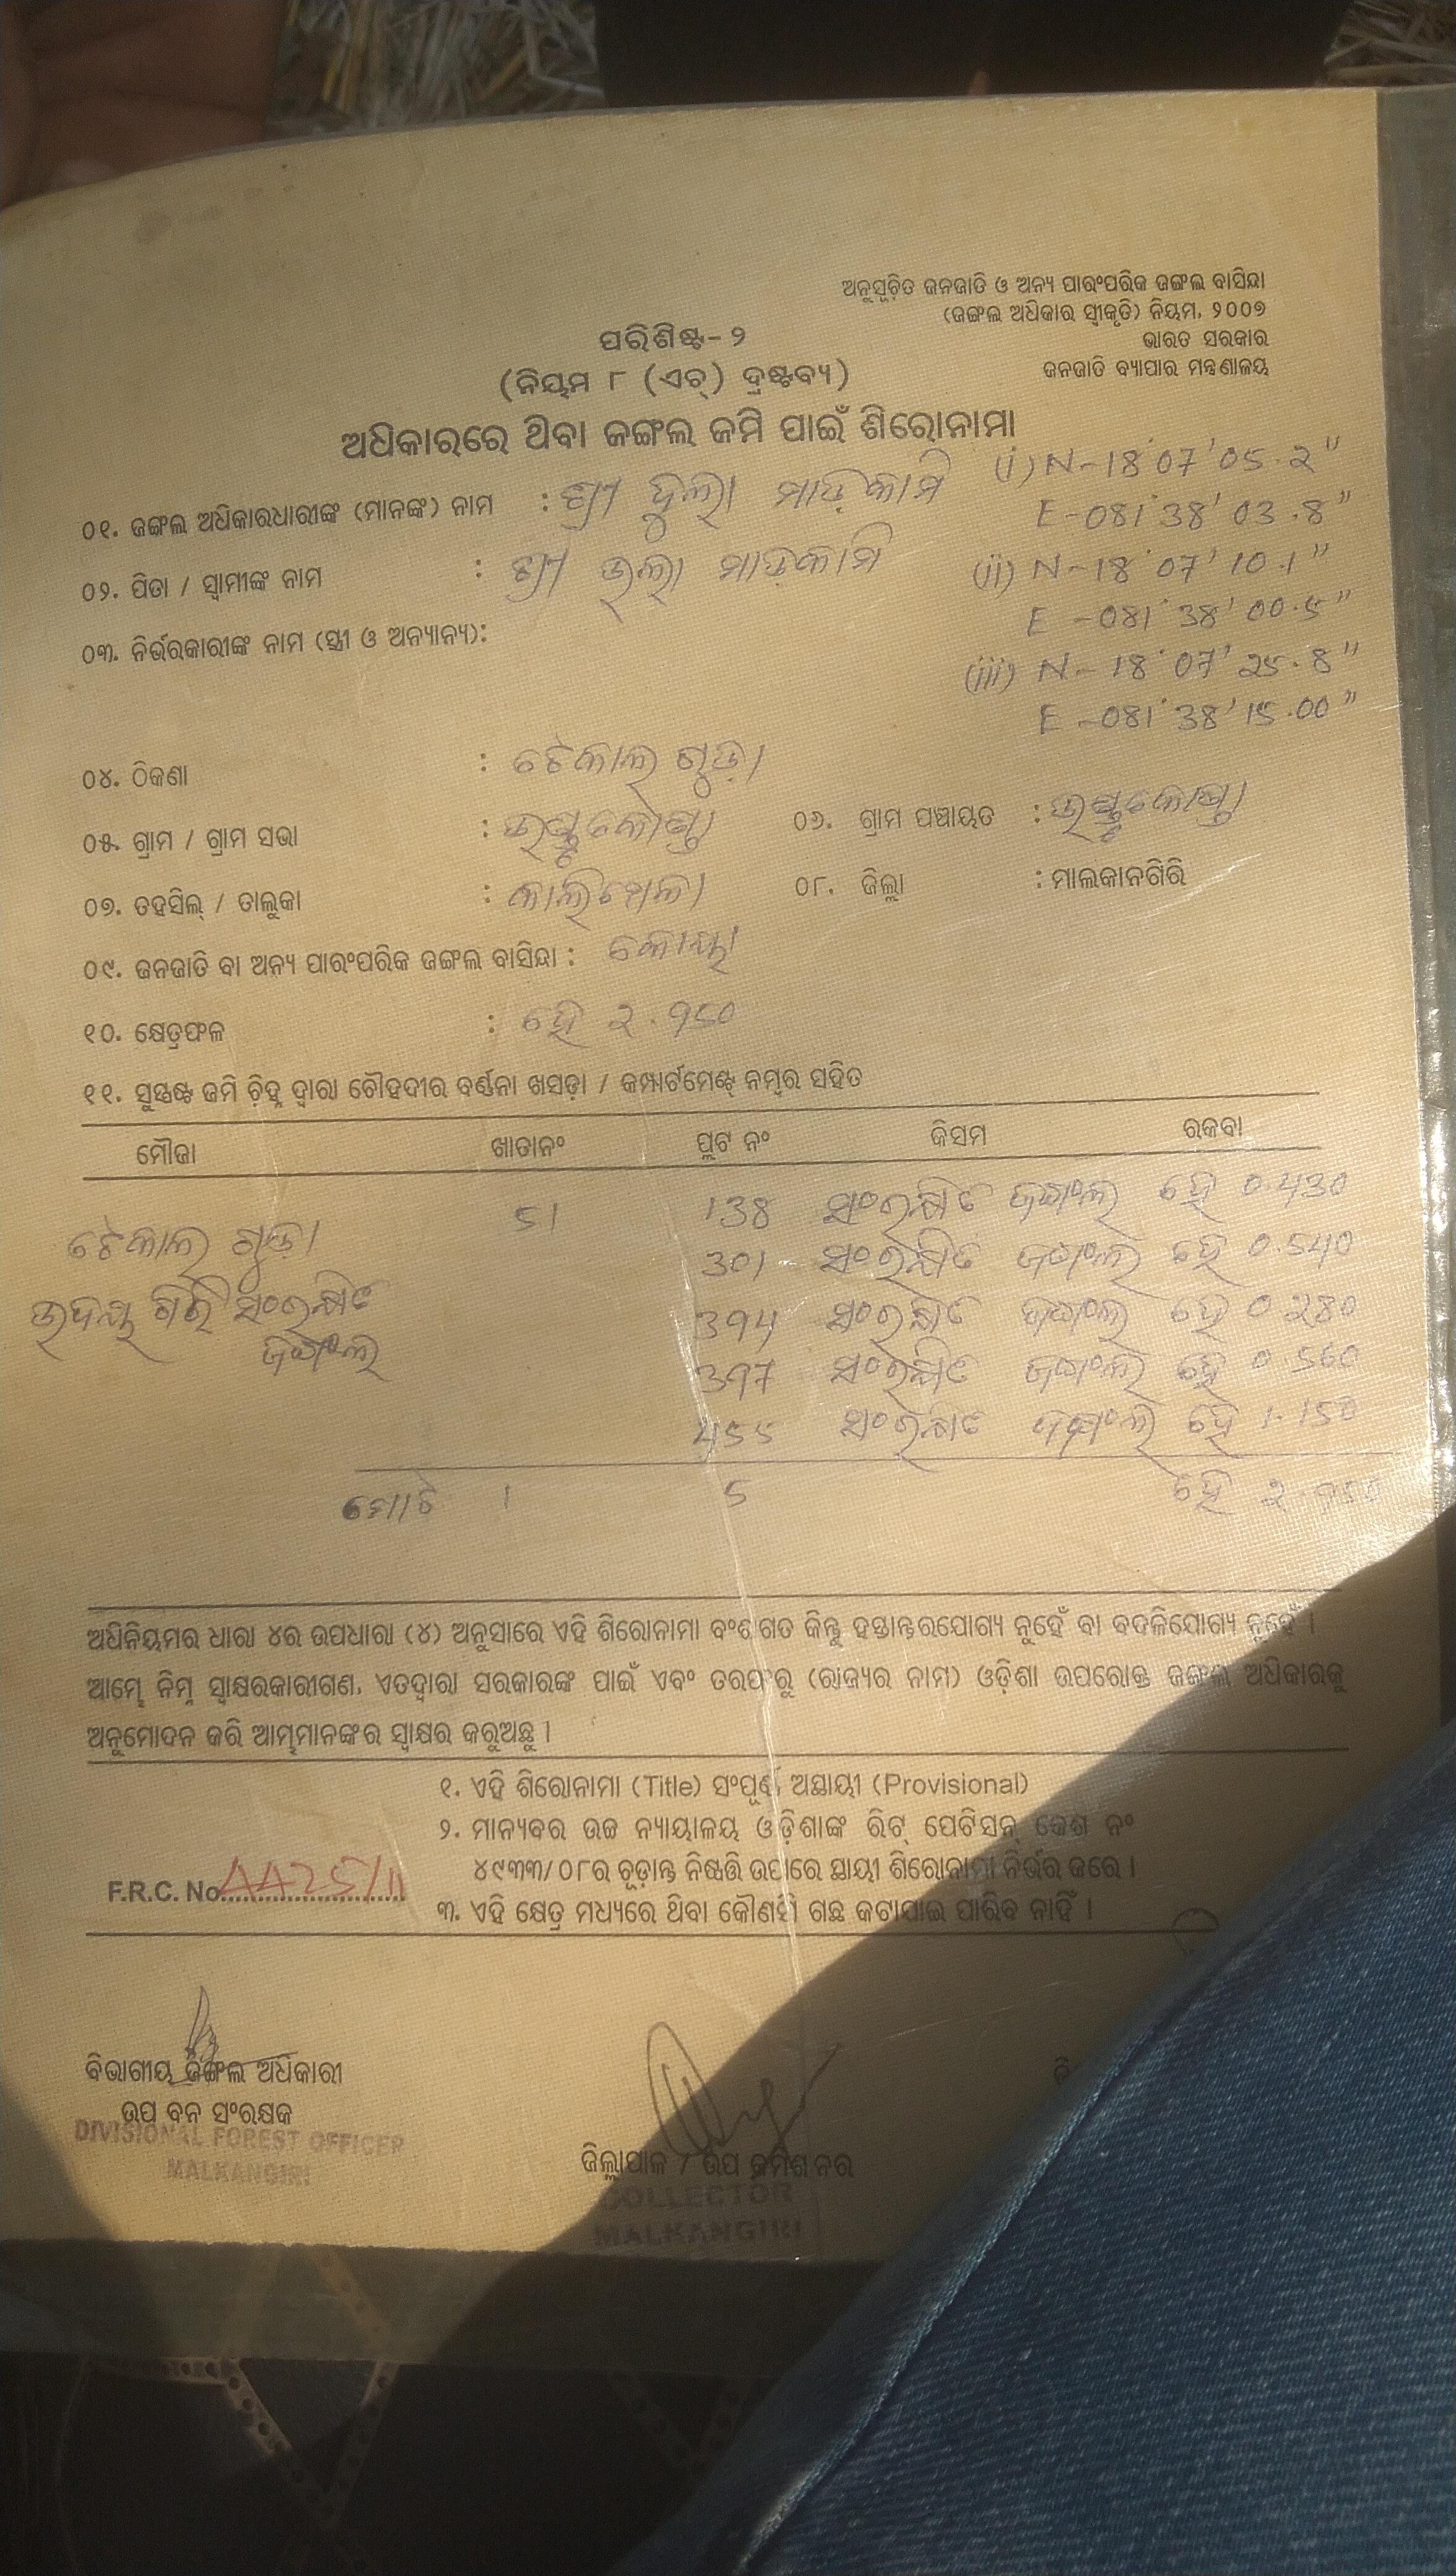 ଅନୁସୂଚିତ ଜନଜାତି ଓ ଅନ୍ୟ ପାରଂପରିକ ଜଙ୍ଗଲ ବାସିନ୍ଦା
(ଜଙ୍ଗଲ ଅଧିକାର ସ୍ୱୀକୃତି) ନିୟମ, ୨୦୦୭
ଭାରତ ସରକାର
ଜନଜାତି ବ୍ୟାପାର ମନ୍ତ୍ରଣାଳୟ
ପରିଶିଷ୍ଟ-୨
(ନିୟମ ୮ (ଏଚ୍) ଦ୍ରଷ୍ଟବ୍ୟ)
ଅଧିକାରରେ ଥିବା ଜଙ୍ଗଲ ଜମି ପାଇଁ ଶିରୋନାମା
(i) N-18°07'05.2"
E-081°38'03.8"
(ii) N-18°07'10.1"
E-081°38'00.5"
(iii) N-18°07'25.8"
E-081°38'15.00"
୦୧. ଜଙ୍ଗଲ ଅଧିକାରଧାରୀଙ୍କ (ମାନଙ୍କ) ନାମ : ଶ୍ରୀ ଦୁଲା ମାଡ଼କାମି
୦୨. ପିତା / ସ୍ୱାମୀଙ୍କ ନାମ : ଶ୍ରୀ ଉଲା ମାଡ଼କାମି
୦୩. ନିର୍ଭରକାରୀଙ୍କ ନାମ (ସ୍ତ୍ରୀ ଓ ଅନ୍ୟାନ୍ୟ):
୦୪. ଠିକଣା : ଟେକାଲ ଗୁଡ଼ା
୦୫. ଗ୍ରାମ / ଗ୍ରାମ ସଭା :
୦୬. ଗ୍ରାମ ପଞ୍ଚାୟତ :
୦୭. ତହସିଲ୍ / ତାଲୁକା : କାଲିମେଳା
୦୮. ଜିଲ୍ଲା : ମାଲକାନଗିରି
୦୯. ଜନଜାତି ବା ଅନ୍ୟ ପାରଂପରିକ ଜଙ୍ଗଲ ବାସିନ୍ଦା : କୋୟା
୧୦. କ୍ଷେତ୍ରଫଳ : ହେ ୨.୨50
୧୧. ସୁସ୍ପଷ୍ଟ ଜମି ଚିହ୍ନ ଦ୍ୱାରା ଚୌହଦୀର ବର୍ଣ୍ଣନା ଖସଡ଼ା / କମ୍ପାର୍ଟମେଣ୍ଟ୍ ନମ୍ବର ସହିତ
ମୌଜା ଖାତାନଂ ପ୍ଲଟ ନଂ କିସମ ରକବା
ଟେକାଲ ଗୁଡ଼ା 51 138 ସଂରକ୍ଷିତ ଜଙ୍ଗଲ ହେ 0.430
ଉଦୟ ଗିରି ସଂରକ୍ଷିତ 301 ସଂରକ୍ଷିତ ଜଙ୍ଗଲ ହେ 0.540
ଜଙ୍ଗଲ 394 ସଂରକ୍ଷିତ ଜଙ୍ଗଲ ହେ 0.280
397 ସଂରକ୍ଷିତ ଜଙ୍ଗଲ ହେ 0.560
455 ସଂରକ୍ଷିତ ଜଙ୍ଗଲ ହେ 1.150
ମୋଟ 1 5 ହେ
ଅଧିନିୟମର ଧାରା ୪ର ଉପଧାରା (୪) ଅନୁସାରେ ଏହି ଶିରୋନାମା ବଂଶଗତ କିନ୍ତୁ ହସ୍ତାନ୍ତରଯୋଗ୍ୟ ନୁହେଁ ବା ବଦଳିଯୋଗ୍ୟ ନୁହେଁ ।
ଆମ୍ଭେ ନିମ୍ନ ସ୍ୱାକ୍ଷରକାରୀଗଣ, ଏତଦ୍ୱାରା ସରକାରଙ୍କ ପାଇଁ ଏବଂ ତରଫରୁ (ରାଜ୍ୟର ନାମ) ଓଡ଼ିଶା ଉପରୋକ୍ତ ଜଙ୍ଗଲ ଅଧିକାରକୁ
ଅନୁମୋଦନ କରି ଆମ୍ଭମାନଙ୍କର ସ୍ୱାକ୍ଷର କରୁଅଛୁ ।
୧. ଏହି ଶିରୋନାମା (Title) ସଂପୂର୍ଣ୍ଣ ଅସ୍ଥାୟୀ (Provisional)
୨. ମାନ୍ୟବର ଉଚ୍ଚ ନ୍ୟାୟାଳୟ ଓଡ଼ିଶାଙ୍କ ରିଟ୍ ପେଟିସନ୍ କେଶ ନଂ
୪୯୩୩/୦୮ର ଚୂଡ଼ାନ୍ତ ନିଷ୍ପତ୍ତି ଉପରେ ସ୍ଥାୟୀ ଶିରୋନାମା ନିର୍ଭର କରେ ।
F.R.C. No. AA25/11
୩. ଏହି କ୍ଷେତ୍ର ମଧ୍ୟରେ ଥିବା କୌଣସି ଗଛ କଟାଯାଇ ପାରିବ ନାହିଁ ।
ବିଭାଗୀୟ ଜଙ୍ଗଲ ଅଧିକାରୀ
ଉପ ବନ ସଂରକ୍ଷକ
DIVISIONAL FOREST OFFICER
MALKANGIRI
ଜିଲ୍ଲାପାଳ / ଉପ କମିଶନର
COLLECTOR
MALKANGIRI